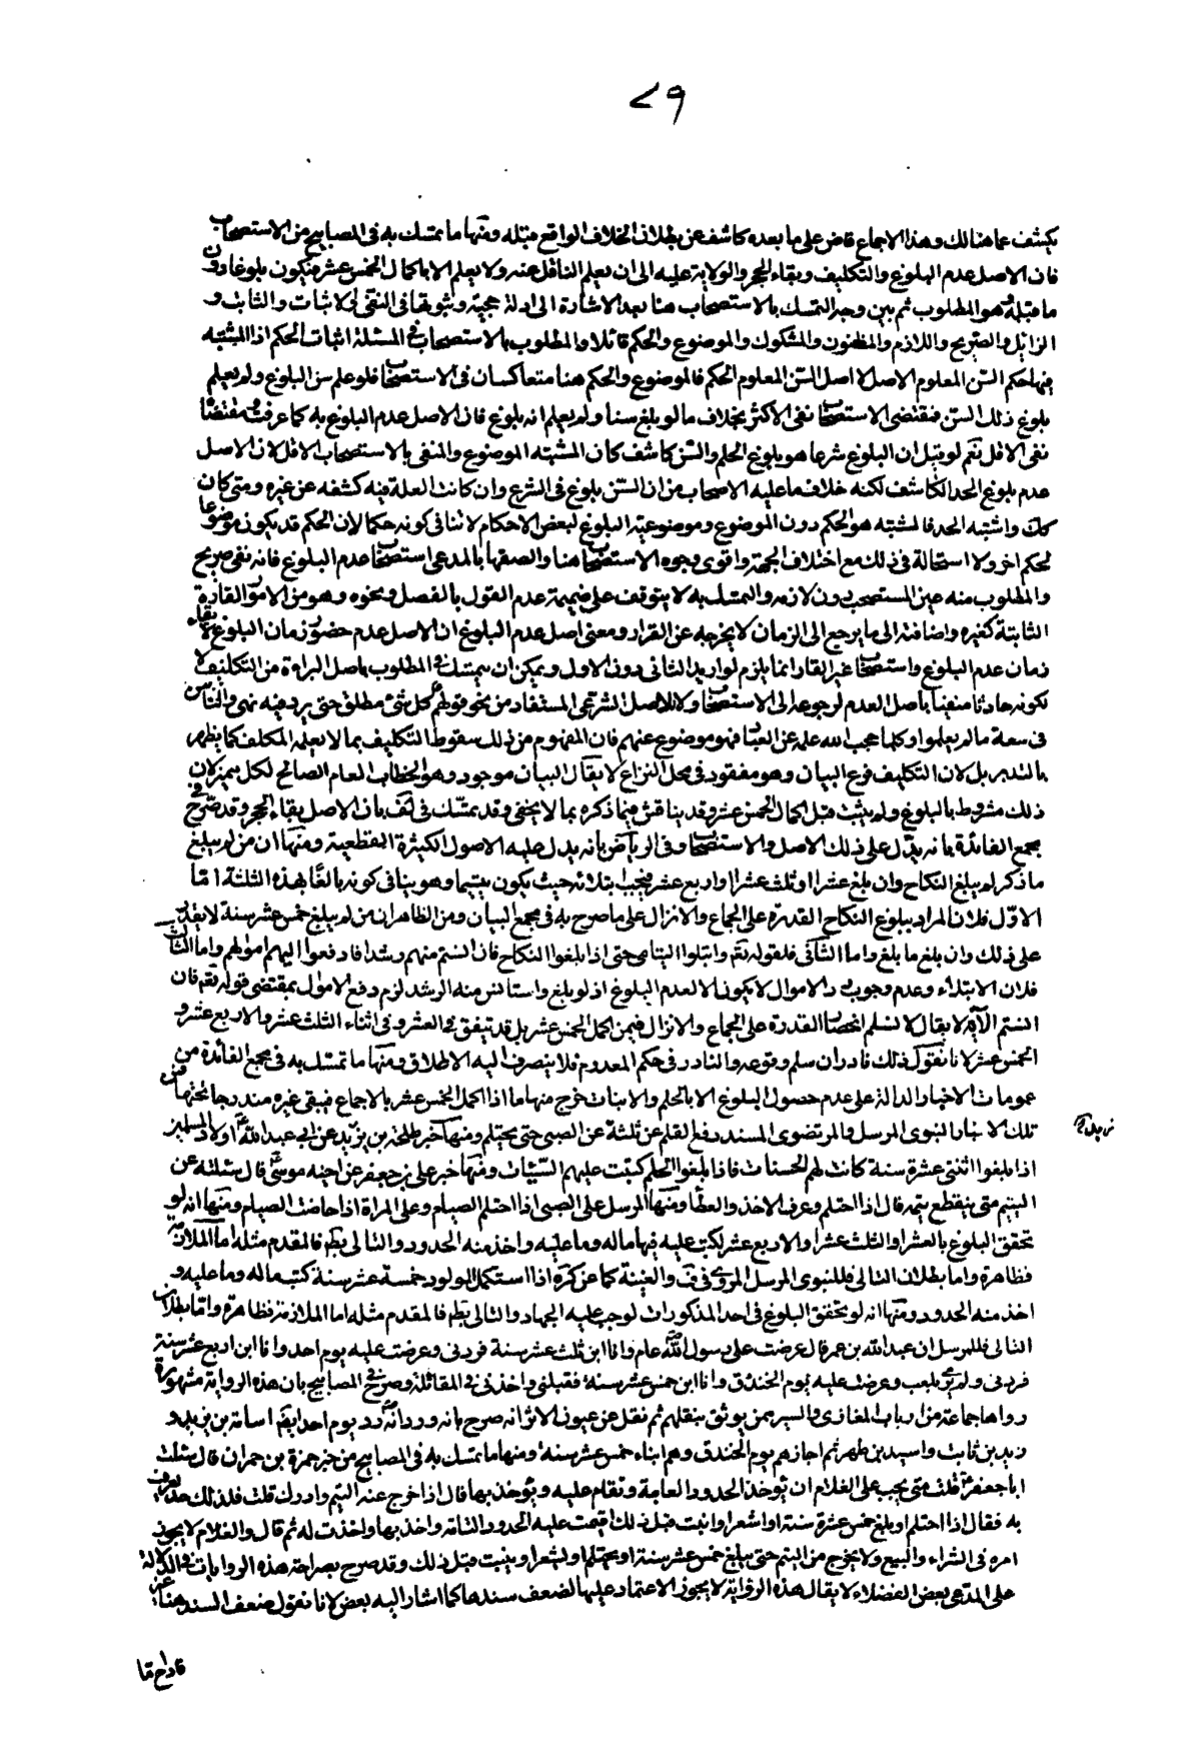 ٧٩
يكشف عما هنالك وهذا الاجماع قاض على ما بعده كاشف عن بطلان الخلاف الواقع قبله ومنها ما تمسك به فى المصابيح من الاستصحاب
فان الاصل عدم البلوغ والتكليف وبقاء الحجر والولاية عليه الى ان يعلم الناقل عنه ولا يعلم الا باكمال الخمس عشر فيكون بلوغا دون
ما قبله وهو المطلوب ثم بين وجه التمسك بالاستصحاب هنا بعد الاشارة الى ادلة حجيته وثبوتها فى النفى والاثبات والثابت و
الزايل والصريح واللازم والمظنون والمشكوك والموضوع والحكم قائلا والمطلوب بالاستصحاب فى المسئلة اثبات الحكم اذ المشتبه
فيها حكم السن المعلوم الاصل لا اصل السن المعلوم الحكم فالموضوع والحكم هنا متعاكسان فى الاستصحاب فلو علم سن البلوغ ولم يعلم
بلوغ ذلك السن فمقتضى الاستصحاب نفى الاكثر بخلاف ما لو بلغ سنا ولم يعلم انه بلوغ فان الاصل عدم البلوغ به كما عرفت ومقتضاه
نفى الاقل نعم لو قيل ان البلوغ شرعا هو بلوغ الحلم والسن كاشف كان المشتبه الموضوع والمنفى بالاستصحاب الاقل لان الاصل
عدم بلوغ الحد الكاشف لكنه خلاف ما عليه الاصحاب من ان السن بلوغ فى الشرع وان كانت العلة فيه كشفه عن غيره ومتى كان
كك واشتبه الحد فالمشتبه هو الحكم دون الموضوع وموضوعية البلوغ لبعض الاحكام لا تنافى كونه حكما لان الحكم قد يكون موضوعا
لحكم اخر ولا استحالة فى ذلك مع اختلاف الجهة واقوى وجوه الاستصحاب هنا والصقها بالمدعى استصحاب عدم البلوغ فانه نفى صريح
والمطلوب منه عين المستصحب دون لازمه والتمسك به لا يتوقف على ضميمة عدم القول بالفصل ونحوه وهو من الامور القادرة
الثابتة كغيره واضافته الى ما يرجع الى الزمان لا يخرجه عن القرار ومعنى اصل عدم البلوغ ان الاصل عدم حضور زمان البلوغ لا بقاء
زمان عدم البلوغ واستصحاب غير القار انما يلزم لو اريد الثانى دون الاول ويمكن ان يتمسك فى المطلوب باصل البراءة من التكليف لا
لكونه حادثا منفيا باصل العدم لرجوعه الى الاستصحاب ولا للاصل الشرعى المستفاد من نحو قولهم كل شئ مطلق حتى يرد فيه نهى والناس
فى سعة ما لم يعلموا وكلما حجب الله علمه عن العباد فهو موضوع عنهم فان المفهوم من ذلك سقوط التكليف بما لا يعلمه المكلف كما يظهر
بالتدبر بل لان التكليف فرع البيان وهو مفقود فى محل النزاع لا يقال البيان موجود وهو الخطاب العام الصالح لكل مميز لان
ذلك مشروط بالبلوغ ولم يثبت قبل اكمال الخمس عشر وقد يناقش فيما ذكره بما لا يخفى وقد تمسك فى كف بان الاصل بقاء الحجر وقد صرح فى
مجمع الفائدة بانه يدل على ذلك الاصل والاستصحاب وفى الرياض بانه يدل عليه الاصول الكثيرة القطعية ومنها ان من لم يبلغ
ما ذكر لم يبلغ النكاح وان بلغ عشرا او ثلث عشرا واربع عشر فيجب ابتلائه حيث يكون يتيما وهو ينافى كونه بالغا بهذه الثلثة اما
الاول فلان المراد ببلوغ النكاح القدرة على الجماع والانزال على ما صرح به فى مجمع البيان ومن الظاهر ان من لم يبلغ خمس عشر سنة لا يقدر
على ذلك وان بلغ ما بلغ واما الثانى فلقوله تعم وابتلوا اليتامى حتى اذا بلغوا النكاح فان انستم منهم رشدا فادفعوا اليهم اموالهم واما الثالث
فلان الابتلاء وعدم وجوب رد الاموال لا يكون الا لعدم البلوغ اذ لو بلغ واستانس منه الرشد لزم دفع الاموال بمقتضى قوله تعم فان
انستم الآية لا يقال لا نسلم انحصار القدرة على الجماع والانزال فيمن اكمل الخمس عشر بل قد يتفق فى العشر وفى اثناء الثلث عشر والاربع عشر و
الخمس عشر لانا نقول ذلك نادر ان سلم وقوعه والنادر فى حكم المعدوم فلا ينصرف اليه الاطلاق ومنها ما تمسك به فى مجمع الفائدة من
عمومات الاخبار الدالة على عدم حصول البلوغ الا بالحلم والانبات خرج منها ما اذا اكمل الخمس عشر بالاجماع فيبقى غيره مندرجا تحتها فمن
تلك الاخبار النبوى المرسل والمرتضوى المسند رفع القلم عن ثلثة عن الصبى حتى يحتلم ومنها خبر طلحة بن زيد عن ابى عبد الله اولاد المسلمين
اذا بلغوا اثنتى عشرة سنة كانت لهم الحسنات فاذا بلغوا الحلم كتبت عليهم السيئات ومنها خبر على بن جعفر عن اخيه موسى قال سئلته عن
اليتيم متى ينقطع يتمه قال اذا احتلم وعرف الاخذ والعطاء ومنها المرسل على الصبى اذا احتلم الصيام وعلى المراة اذا حاضت الصيام ومنها انه لو
تحقق البلوغ بالعشر او الثلث عشر او الاربع عشر لكتب عليه فيها ما له وما عليه واخذ منه الحدود والتالى بط فالمقدم مثله اما الملازمة
فظاهرة واما بطلان التالى فللنبوى المرسل المروى فى ف والغنية كما عن كره اذا استكمل المولود خمسة عشر سنة كتب ما له وما عليه و
اخذ منه الحدود ومنها انه لو تحقق البلوغ فى احد المذكورات لوجب عليه الجهاد والتالى بط فالمقدم مثله اما الملازمة فظاهرة واما بطلان
التالى فللمرسل ان عبد الله بن عمر قال عرضت على رسول الله عام وانا ابن ثلث عشر سنة فردنى وعرضت عليه يوم احد وانا ابن اربع عشر سنة
فردنى ولم يرنى بلغت وعرضت عليه يوم الخندق وانا ابن خمس عشر سنة فقبلنى واخذنى فى المقاتلة وصرح فى المصابيح بان هذه الرواية مشهورة
رواها جماعة من ارباب المغازى والسير ممن يوثق بنقلهم ثم نقل عن عيون الاثر انه صرح بانه ورد انه رد يوم احد ايضا اسامة بن زيد و
زيد بن ثابت واسيد بن ظهير ثم اجازهم يوم الخندق وهم ابناء خمس عشر سنة ومنها ما تمسك به فى المصابيح من خبر حمزة بن حمران قال سئلت
ابا جعفر قلت متى يجب على الغلام ان يؤخذ الحدود العامة وتقام عليه ويؤخذ بها قال اذا خرج عنه اليتم وادرك قلت فلذلك حد يعرف
به فقال اذا احتلم او بلغ خمس عشرة سنة او اشعر او انبت قبل ذلك اقيمت عليه الحدود التامة واخذ بها واخذت له ثم قال والغلام لا يجوز
امره فى الشراء والبيع ولا يخرج من اليتم حتى يبلغ خمس عشر سنة او يحتلم او يشعر او ينبت قبل ذلك وقد صرح بصراحة هذه الروايات فى الدلالة
على المدعى بعض الفضلاء لا يقال هذه الرواية لا يجوز الاعتماد عليها لضعف سندها كما اشار اليه بعض لانا نقول ضعف السند هنا غير
قادح قا